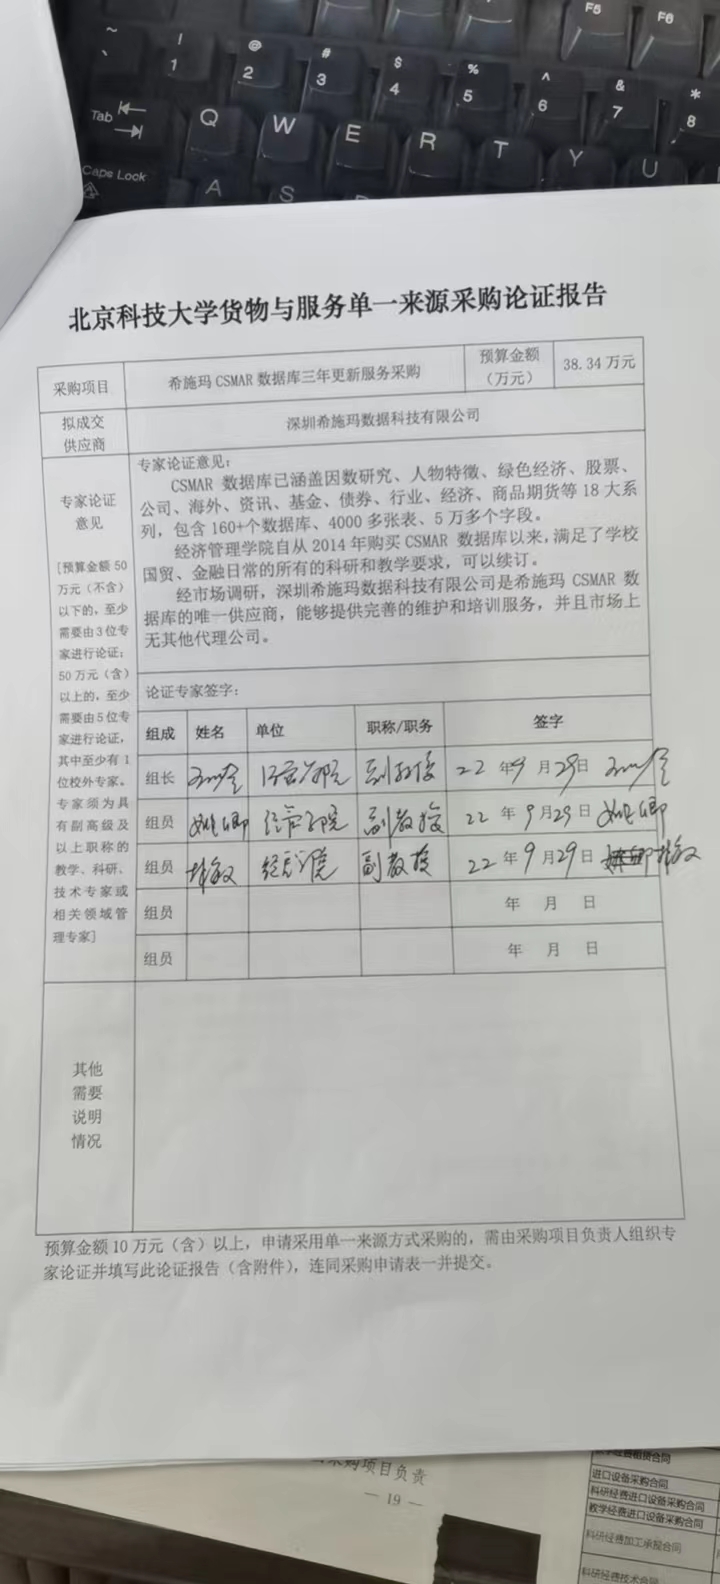 F5
F6
~
、
!
1
@
2
#
3
$
4
%
5
^
6
&
7
*
8
Tab
Q
W
E
R
T
Y
U
Caps Lock
A
S
北京科技大学货物与服务单一来源采购论证报告
采购项目
希施玛 CSMAR 数据库三年更新服务采购
预算金额
（万元）
38.34 万元
拟成交
供应商
深圳希施玛数据科技有限公司
专家论证
意见
[预算金额 50
万元（不含）
以下的，至少
需要由 3 位专
家进行论证；
50 万元（含）
以上的，至少
需要由 5 位专
家进行论证，
其中至少有 1
位校外专家。
专家须为具
有副高级及
以上职称的
教学、科研、
技术专家或
相关领域管
理专家]
专家论证意见：
CSMAR 数据库已涵盖因数研究、人物特徵、绿色经济、股票、
公司、海外、资讯、基金、债券、行业、经济、商品期货等 18 大系
列，包含 160+个数据库、4000 多张表、5 万多个字段。
经济管理学院自从 2014 年购买 CSMAR 数据库以来，满足了学校
国贸、金融日常的所有的科研和教学要求，可以续订。
经市场调研，深圳希施玛数据科技有限公司是希施玛 CSMAR 数
据库的唯一供应商，能够提供完善的维护和培训服务，并且市场上
无其他代理公司。
论证专家签字：
组成 姓名 单位 职称/职务 签字
组长 经管学院 副教授 22 年 9 月 29 日
组员 姚卿 经管学院 副教授 22 年 9 月 29 日 姚卿
组员 林敏 经管学院 副教授 22 年 9 月 29 日 林敏
组员 年 月 日
组员 年 月 日
其他
需要
说明
情况
预算金额 10 万元（含）以上，申请采用单一来源方式采购的，需由采购项目负责人组织专
家论证并填写此论证报告（含附件），连同采购申请表一并提交。
采购项目负责
— 19 —
进口设备采购合同
科研经费进口设备采购合同
教学经费进口设备采购合同
科研经费加工承揽合同
科研经费技术合同